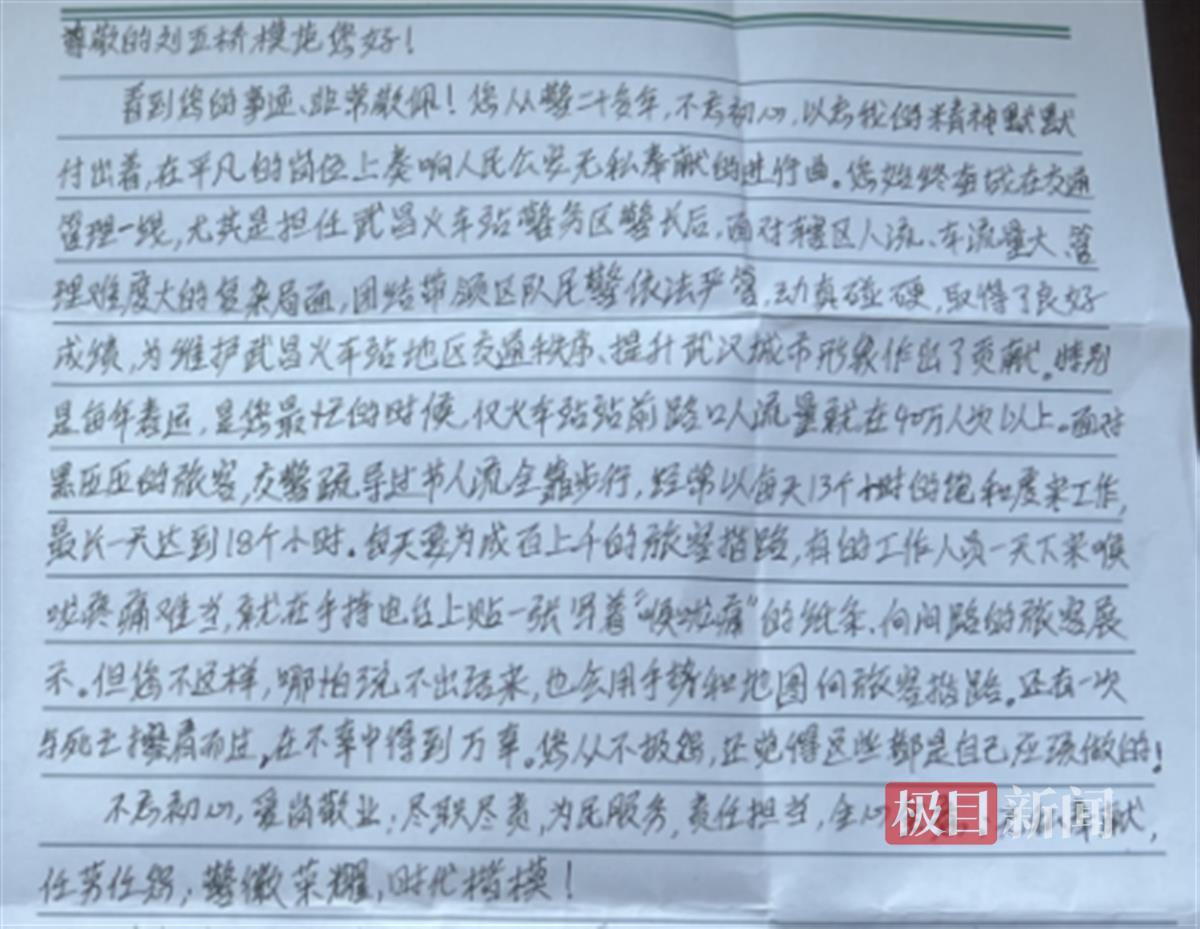 尊敬的刘玉桥模范您好!
看到您的事迹、非常敬佩!您从警二十多年,不忘初心,以忘我的精神默默
付出着,在平凡的岗位上奏响人民公安无私奉献的进行曲。您始终奋战在交通
管理一线,尤其是担任武昌火车站警务区警长后,面对辖区人流、车流量大、管
理难度大的复杂局面,团结带领区队民警依法严管,动真碰硬,取得了良好
成绩,为维护武昌火车站地区交通秩序、提升武汉城市形象作出了贡献。特别
是每年春运,是您最忙的时候,仅火车站站前路口人流量就在40万人次以上。面对
黑压压的旅客,交警疏导过节人流全靠步行,经常以每天13个小时的饱和度来工作,
最长一天达到18个小时。每天要为成百上千的旅客指路,有的工作人员一天下来喉
咙疼痛难当,就在手持电台上贴一张写着“喉咙痛”的纸条、向问路的旅客展
示。但您不这样,哪怕说不出话来,也会用手势和地图向旅客指路。还有一次
与死亡擦肩而过,在不幸中得到万幸。您从不报怨,还觉得这些都是自己应该做的!
不忘初心,爱岗敬业;尽职尽责,为民服务,责任担当,全心
任劳任怨,警徽荣耀,时代楷模!
极目新闻